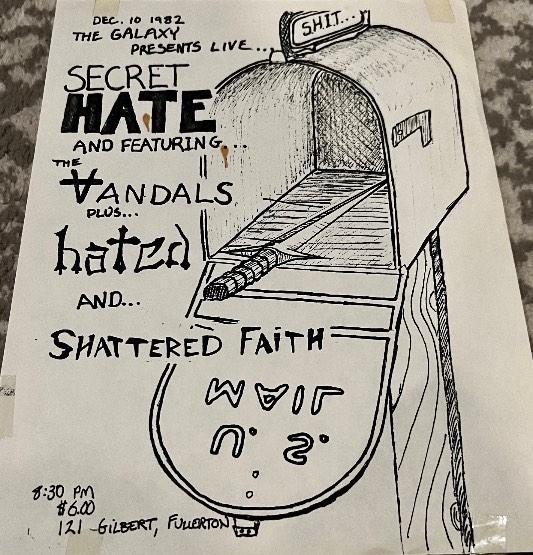 DEC. 10 1982
THE GALAXY
PRESENTS LIVE...
S.H.I.T...
SECRET
HATE
AND FEATURING...
THE
VANDALS
PLUS...
hated
AND...
SHATTERED FAITH
U.S.
MAIL
8:30 PM
$6.00
121 GILBERT, FULLERTON